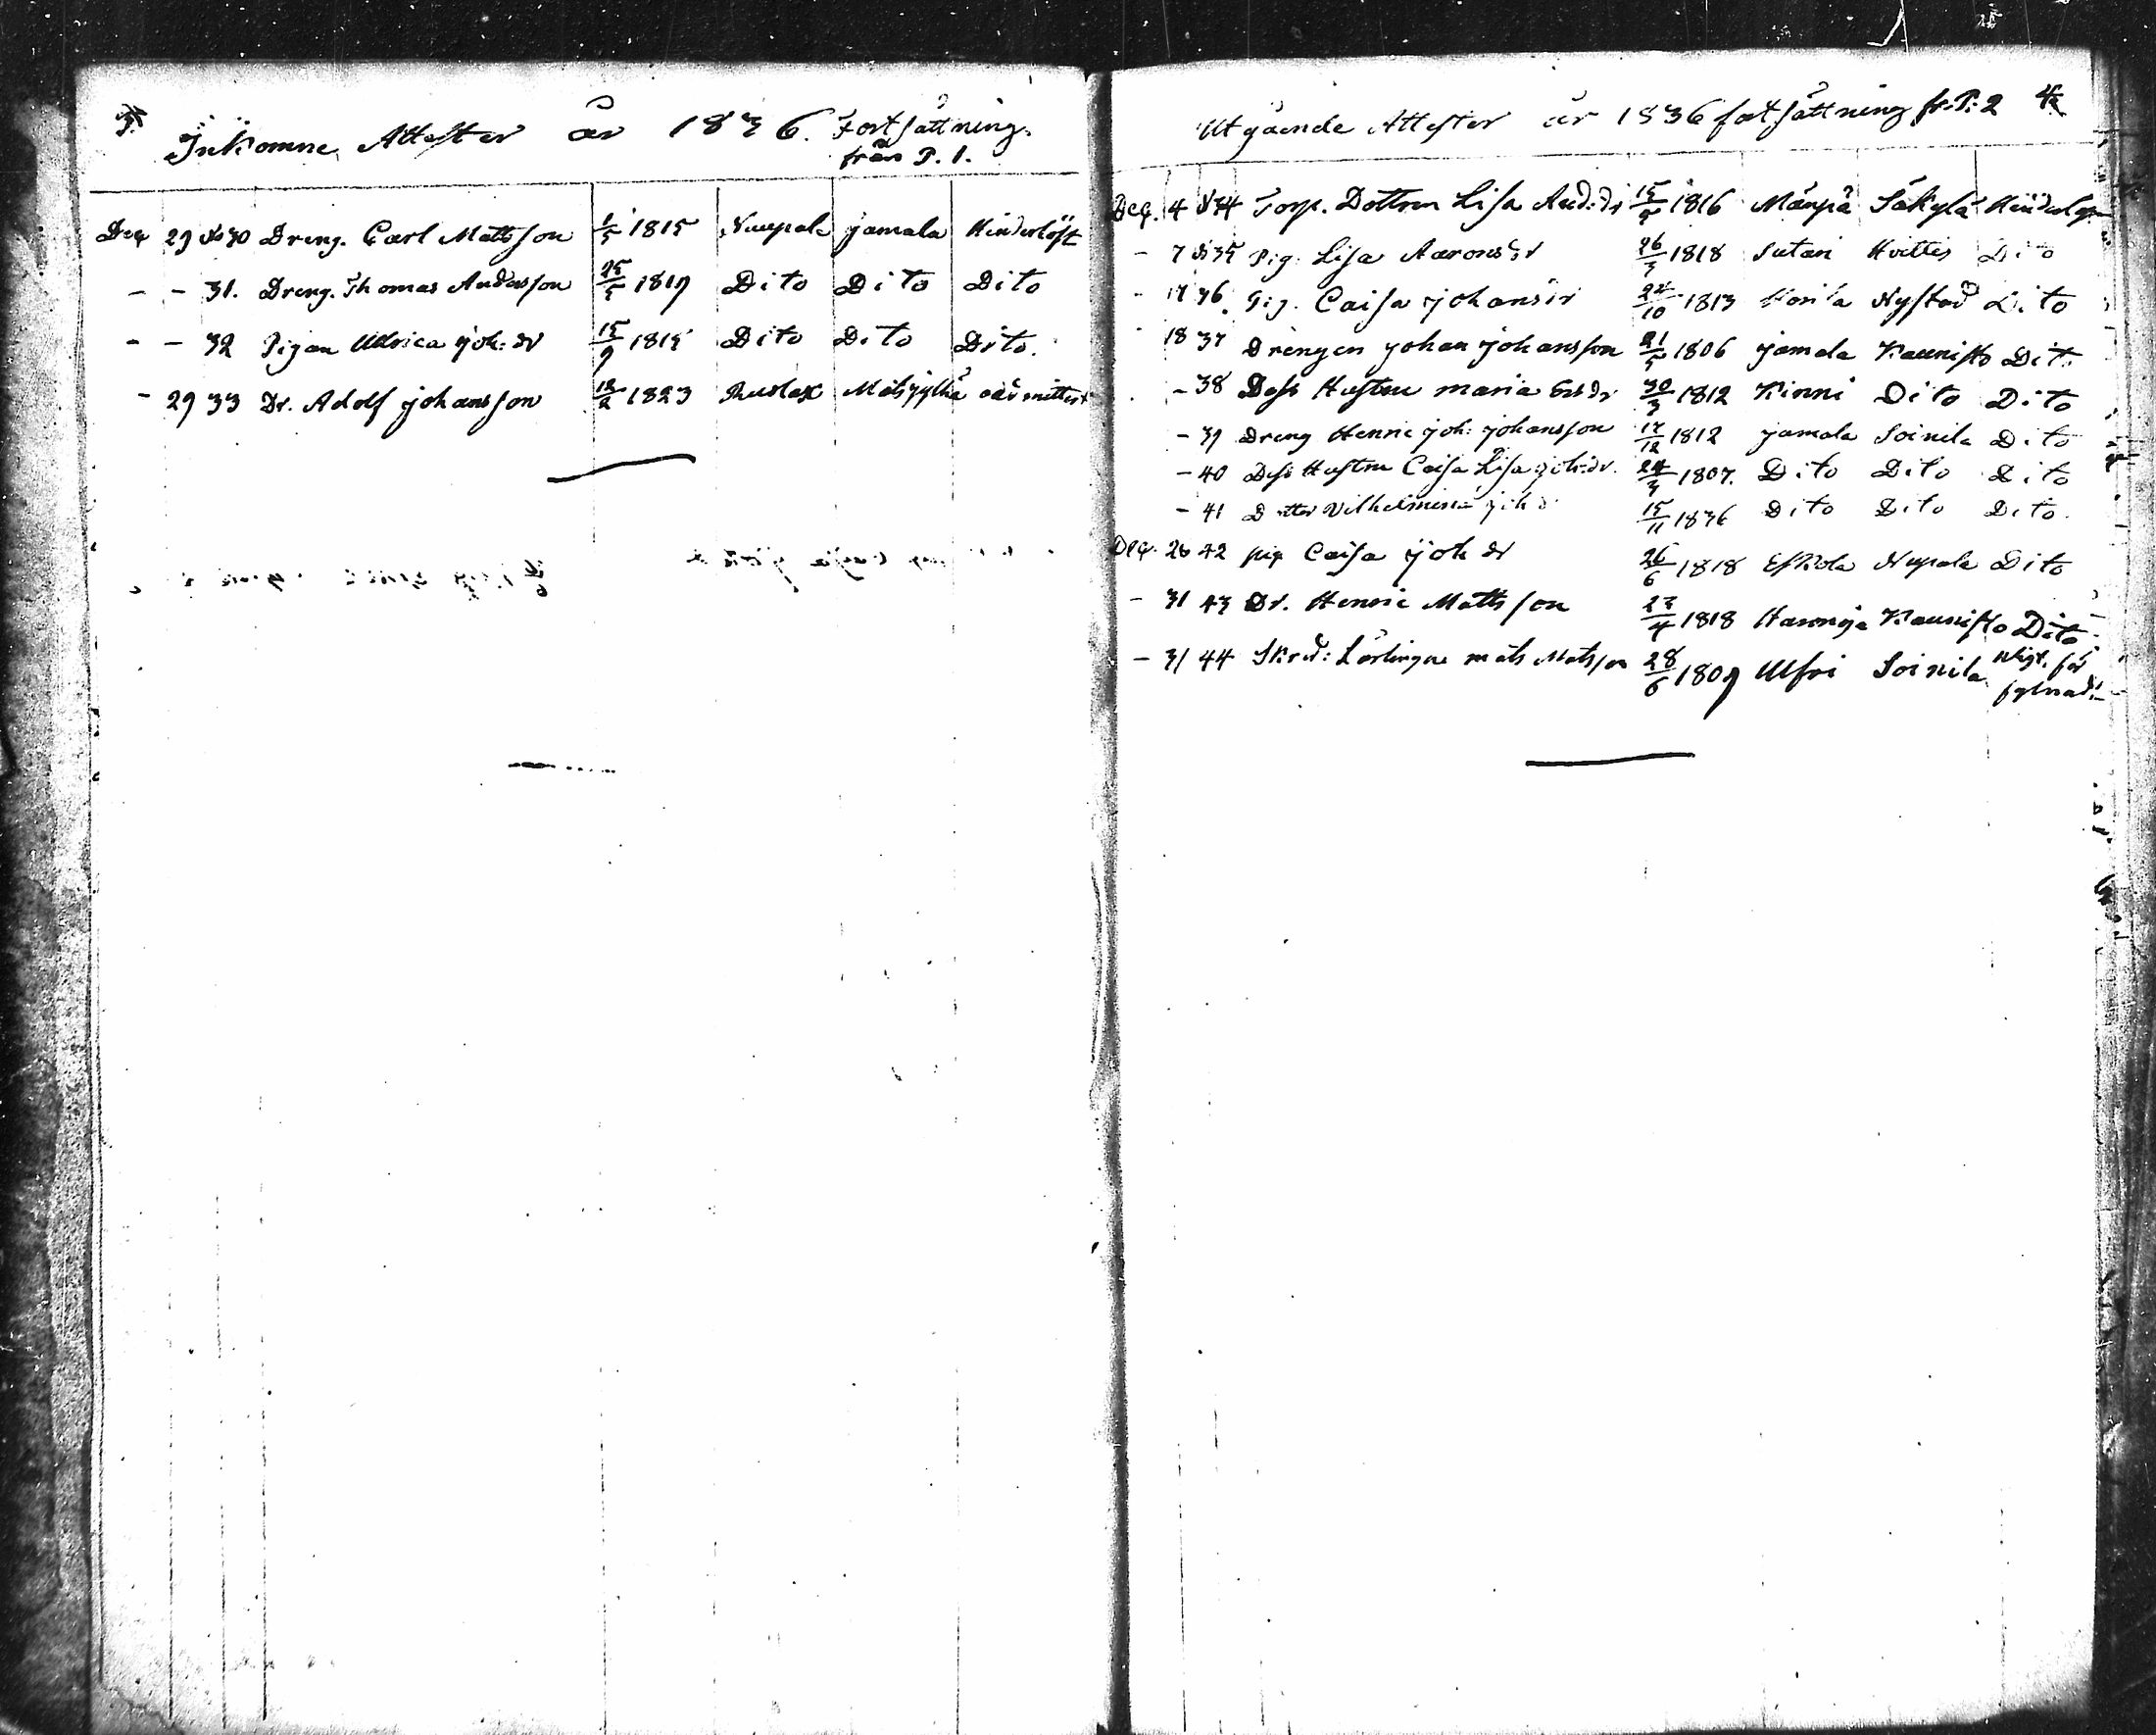 3
Inkomne Attester år 1836. Fortsättning
från P. 1.
Dec 29 No 30 Dreng. Carl Mattsson 1/5 1815 Nuupala jamala Hinderlöst
- - 31. Dreng. Thomas Andersson 25/5 1819 Dito Dito Dito
- - 32 Pigan Ullrica joh: dr 15/9 1815 Dito Dito Dito.
- 29 33 Dr. Adolf johansson 12/2 1823
Utgående Attester år 1836 fortsättning fr. P: 2 4
Dec. 4 N34 Torp. Dottren Lisa And: dr 15/5 1816 Mänpä Säkylä
- 7 N35 Pig. Lisa Aarons dr 26/3 1818 Sutari Hvittis Dito
- 17 36. Pig. Caisa johans dr 24/10 1813 Nystad Dito
18 37 Drengen johan johansson 21/5 1806 jamala Kaunisto Dito
- 38 Dess Hustru maria 30/3 1812 Kinni Dito Dito
- 39 Dreng Henric joh: johansson 17/12 1812 jamala Soinila Dito
- 40 Dess Hustru Caisa Lisa joh: dr. 24/3 1807. Dito Dito Dito
- 41 Dotter Vilhelmina joh d: 15/11 1836 Dito Dito Dito.
Dec. 26 42 pig Caisa joh dr 26/6 1818 Eskola Nupala Dito
- 31 43 Dr. Henric Mattsson 23/4 1818 Kaunisto Dito.
- 31 44 Skred: Lärlingen mats Matsson 28/6 1809 Ulfvi Soinila